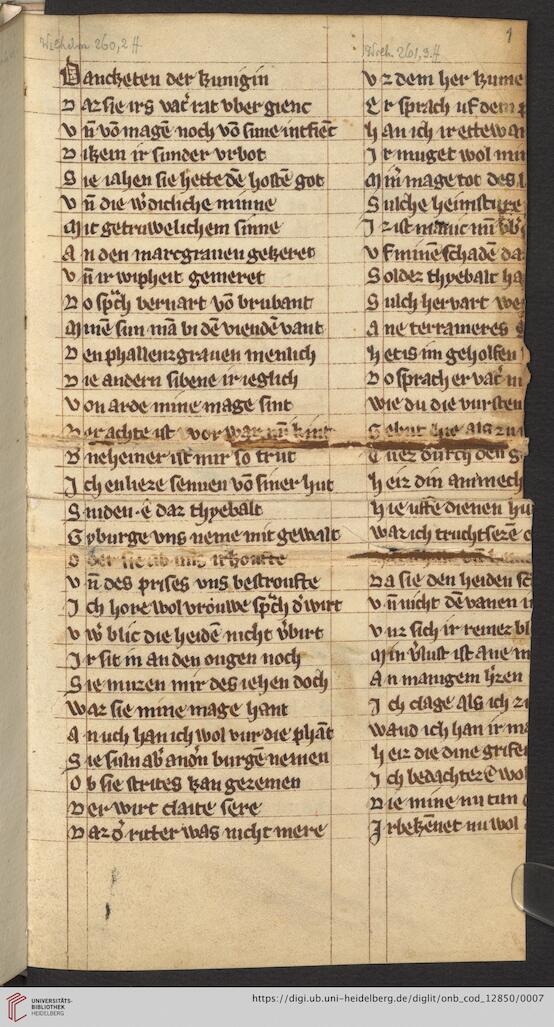 Wilhelm 260,2 ff.
Dancketen der kunigin
D az sie irs vat͛ rat vber gienc
V n̄ vō magen̄ noch vō sune intfiēc
D ikein ir sunder vrbot
S ie iahen sie hette dē hostē got
V n̄ die w͛dicliche minne
M it getruwelichem sinne
A n den marcgrauen gekeret
V n̄ ir wipheit gemeret
D o sp͛ch bernart vō brubant
M inē sun mā bi dē viendē vant
D en phallenzgrauen menlich
D ie andern sibene ir ieglich
V on arde mine mage sint
D er achte ist vor war min kint
D neheiner ist mir so trut
I ch enlieze sennen vō siner hut
S niden e daz thyebalt
G yburge vns neme mit gewalt
O der sie ab uns
V n̄ des prises vns bestroufte
I ch hore wol vrouwe sp͛ch d͛ wirt
V w͛ blic die heidē nicht v͛birt
I r sit in an den ougen noch
S ie muzen mir des iehen doch
W az sie mine mage hant
A n uch han ich wol vur die phāt
S ie suln ab͛ and͛n burgen nemen
O b sie strites kan gezemen
D er wirt claite sere
D az d͛ ritter was nicht mere
1
Wilh. 261,3 ff
V z dem her kume
E r sprach uf dem
H an ich irettewa
I r muget wol
M in͛ mage tot des
S ulche heimsture
I z ist
V f minē schadē da
S oldez thyebalt ha
S ulch hervart we
A ne terrameres
H et is im geholfen
D o sprach er vat͛
W ie du die vursten
T uez durch den g
H eiz din
H ie uffe dienen hu
W az ich truchtsezē
D a sie den heiden
V n̄ nicht dē vanen
V nz sich ir reinez bl
M in v͛lust ist ane
A n manigem h͛zen
I ch clage als ich
W and ich han ir
H eiz die dine grifen
I ch bedachtez ē wol
D ie mine nu tun
I r bekēnet nu wol
UNIVERSITÄTS-
BIBLIOTHEK
HEIDELBERG
https://digi.ub.uni-heidelberg.de/diglit/onb_cod_12850/0007